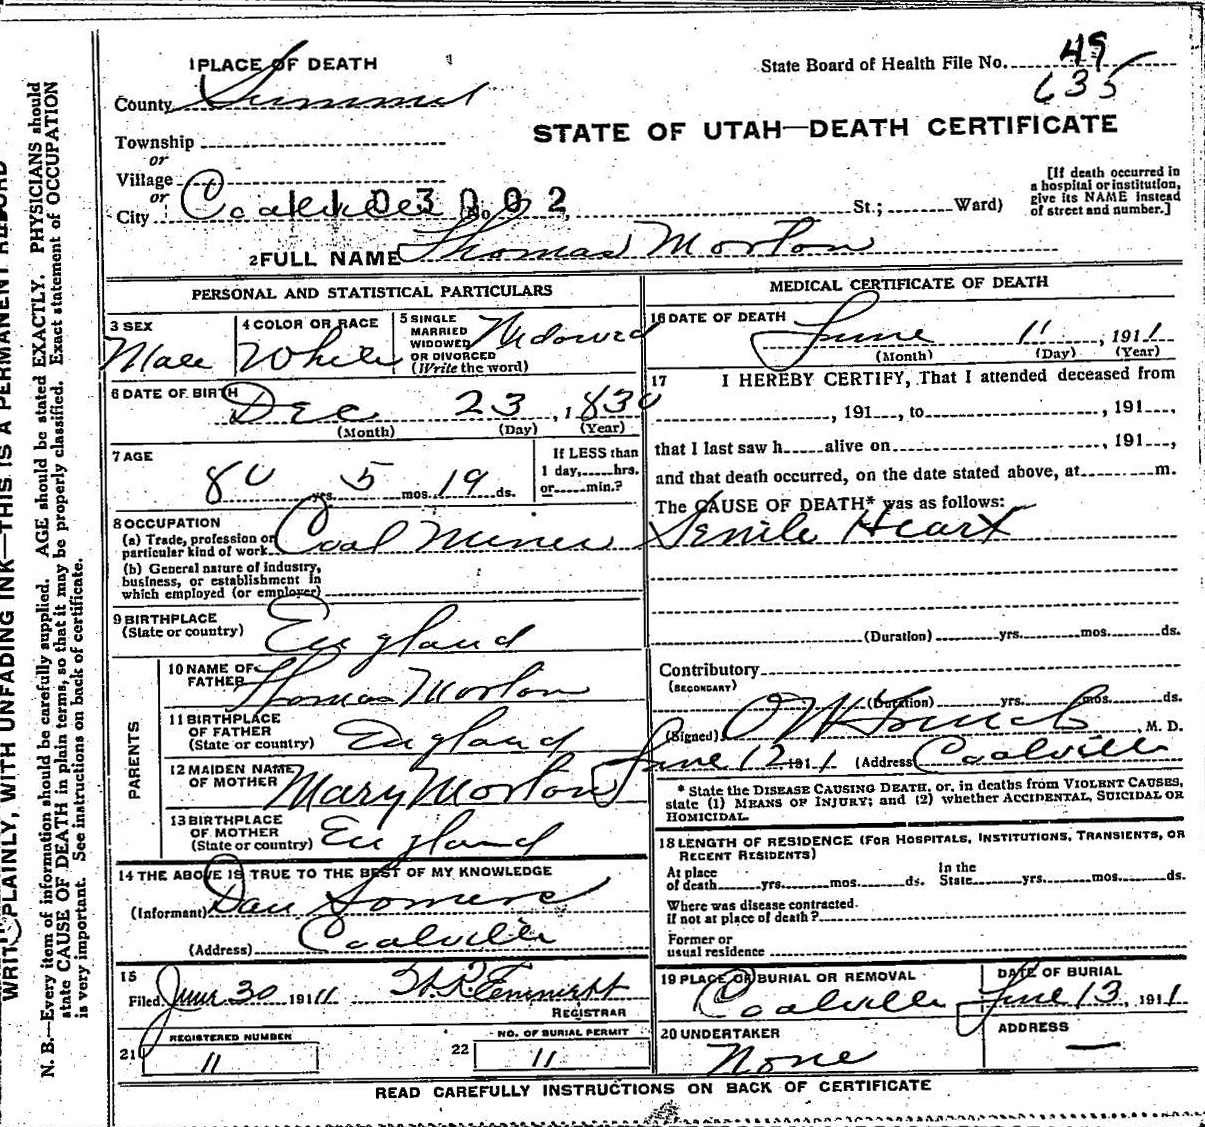 1 PLACE OF DEATH
State Board of Health File No. 49
635
County Summit
STATE OF UTAH—DEATH CERTIFICATE
Township
or
Village
or
City Coalville No. St.; Ward)
1103002
[If death occurred in
a hospital or institution,
give its NAME instead
of street and number.]
2 FULL NAME Thomas Morton
PERSONAL AND STATISTICAL PARTICULARS
3 SEX
Male
4 COLOR OR RACE
White
5 SINGLE
MARRIED
WIDOWED
OR DIVORCED
(Write the word)
Widowed
6 DATE OF BIRTH
Dec 23, 1830
(Month) (Day) (Year)
7 AGE
80 yrs. 5 mos. 19 ds.
If LESS than
1 day, hrs.
or min.?
8 OCCUPATION
(a) Trade, profession or
particular kind of work Coal Miner
(b) General nature of industry,
business, or establishment in
which employed (or employer)
9 BIRTHPLACE
(State or country) England
PARENTS
10 NAME OF
FATHER Thomas Morton
11 BIRTHPLACE
OF FATHER
(State or country) England
12 MAIDEN NAME
OF MOTHER Mary Morton
13 BIRTHPLACE
OF MOTHER
(State or country) England
14 THE ABOVE IS TRUE TO THE BEST OF MY KNOWLEDGE
(Informant) Dan Somers
(Address) Coalville
15
Filed June 30 1911
REGISTRAR
21 REGISTERED NUMBER
11
22 NO. OF BURIAL PERMIT
11
MEDICAL CERTIFICATE OF DEATH
16 DATE OF DEATH
June 11, 1911
(Month) (Day) (Year)
17 I HEREBY CERTIFY, That I attended deceased from
, 191 , to , 191 ,
that I last saw h alive on , 191 ,
and that death occurred, on the date stated above, at m.
The CAUSE OF DEATH* was as follows:
Senile Heart
(Duration) yrs. mos. ds.
Contributory
(SECONDARY)
(Duration) yrs. mos. ds.
(Signed) M. D.
June 12 1911 (Address) Coalville
* State the DISEASE CAUSING DEATH, or, in deaths from VIOLENT CAUSES,
state (1) MEANS OF INJURY; and (2) whether ACCIDENTAL, SUICIDAL OR
HOMICIDAL.
18 LENGTH OF RESIDENCE (FOR HOSPITALS, INSTITUTIONS, TRANSIENTS, OR
RECENT RESIDENTS)
At place
of death yrs. mos. ds.
In the
State yrs. mos. ds.
Where was disease contracted.
if not at place of death?
Former or
usual residence
19 PLACE OF BURIAL OR REMOVAL
Coalville
DATE OF BURIAL
June 13, 1911
20 UNDERTAKER
None
ADDRESS
—
READ CAREFULLY INSTRUCTIONS ON BACK OF CERTIFICATE
WRITE PLAINLY, WITH UNFADING INK—THIS IS A PERMANENT RECORD
N. B.—Every item of information should be carefully supplied. AGE should be stated EXACTLY. PHYSICIANS should
state CAUSE OF DEATH in plain terms, so that it may be properly classified. Exact statement of OCCUPATION
is very important. See instructions on back of certificate.